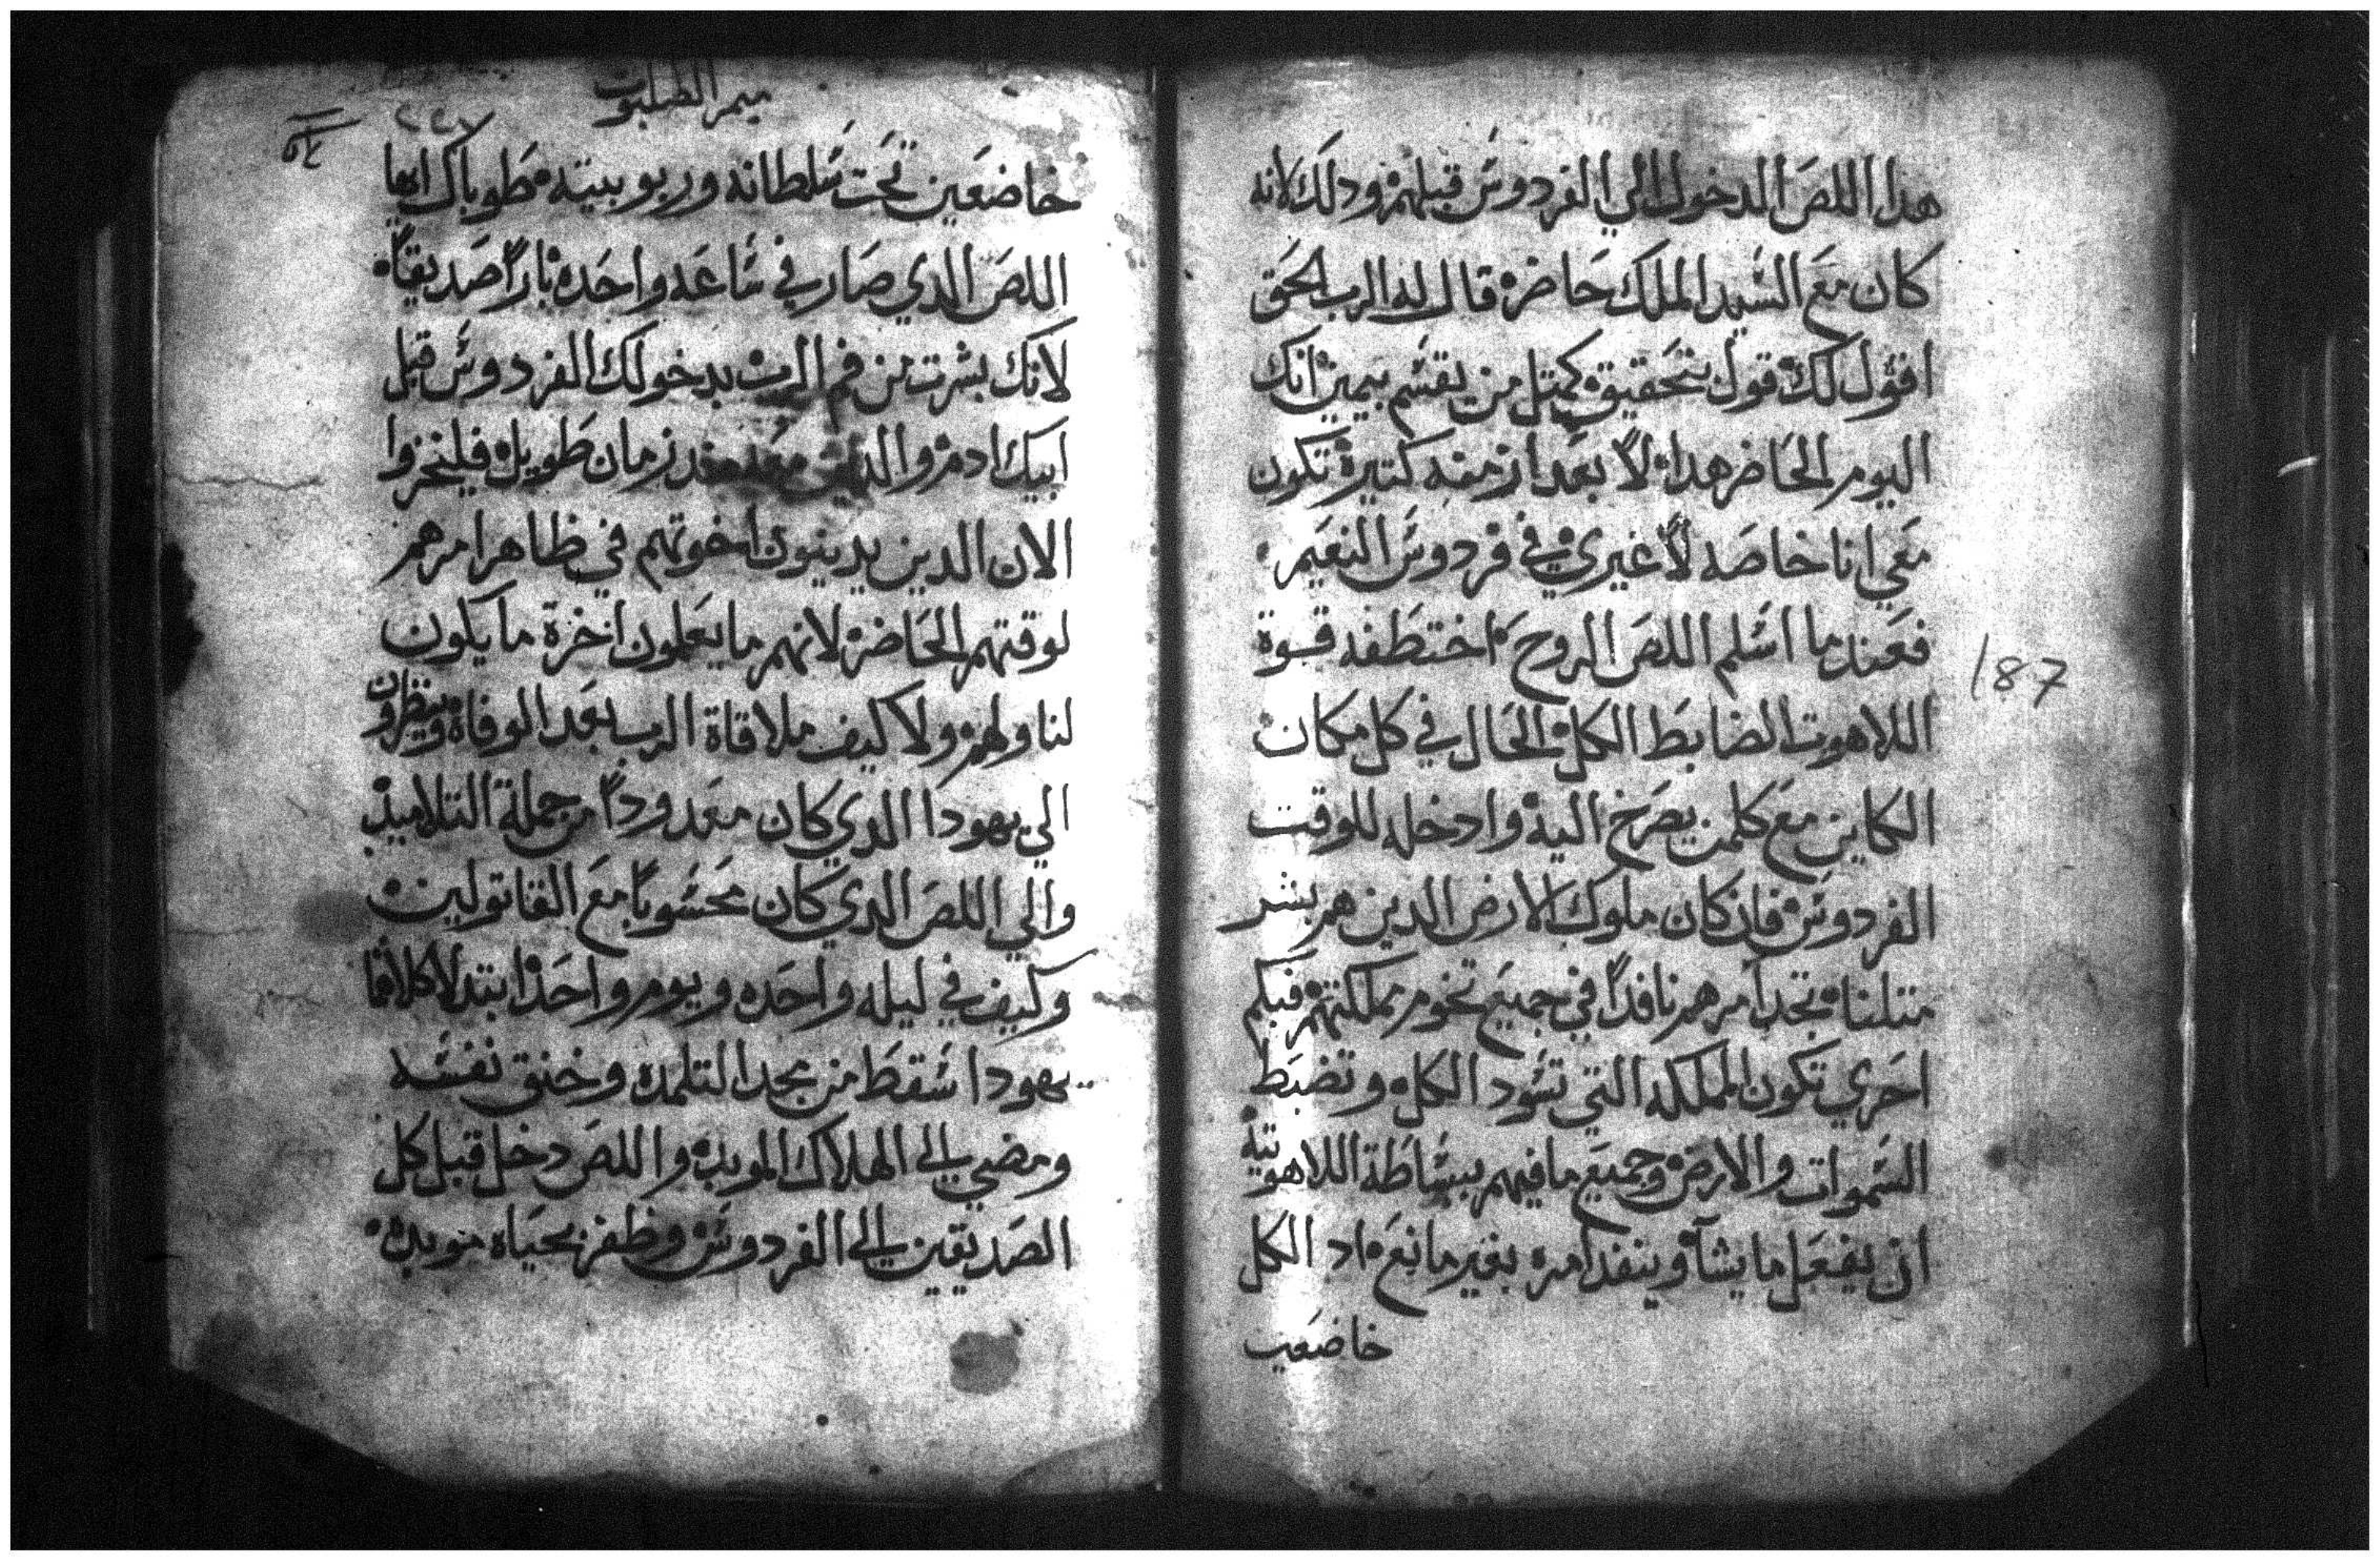 هدا اللص الدخول الي الفردوس قبلهم ودلك لانه
كان مع السيد الملك حاضر قال له الرب الحق
اقول لك قول بتحقيق كمتل من يقسم بيمين انك
اليوم الحاضر هدا لاً بعد ازمنه كتيرة تكون
معي انا خاصه لاً غيري في فردوس النعيم
فعندما اسلم اللص الروح اختطفه قوة
اللاهوت الضابط الكل الحال في كل مكان
الكاين مع كلمن يصرخ اليه وادخله للوقت
الفردوس فان كان ملوك الارض الدين هم بشر
متلنا تجد امرهم نافداً في جميع تخوم مملكتهم فبكم
احري تكون المملكه التي تسود الكل وتضبط
السموات والارض وجميع ما فيهم ببساطة اللاهوتيه
ان يفعل ما يشآ وينفد امره بغير مانع اد الكل
خاضعين
187
ميمر الصلبوت
٢٢٧
خاضعين تحت سلطانه وربوبيته طوباك ايها
اللص الدي صار في ساعه واحده باراً صديقاً
لانك بشرت من فم الرب بدخولك الفردوس قبل
ابيك ادم والدين معه مند زمان طويل فليخزوا
الان الدين يدينون اخوتهم في ظاهر امرهم
لوقتهم الحاضر لانهم ما يعلمون اخرة ما يكون
لنا ولهم ولا كيف ملاقاة الرب بعد الوفاة وينظرون
الي يهودا الدي كان معدوداً من جملة التلاميد
والي اللص الدي كان محسوباً مع القاتولين
وكيف في ليله واحده ويوم واحد ابتدلا كلاهما
يهودا سقط من مجد التلمده وخنق نفسه
ومضي الي الهلاك الموبد واللص دخل قبل كل
الصديقين الي الفردوس وظفر بحياه موبده